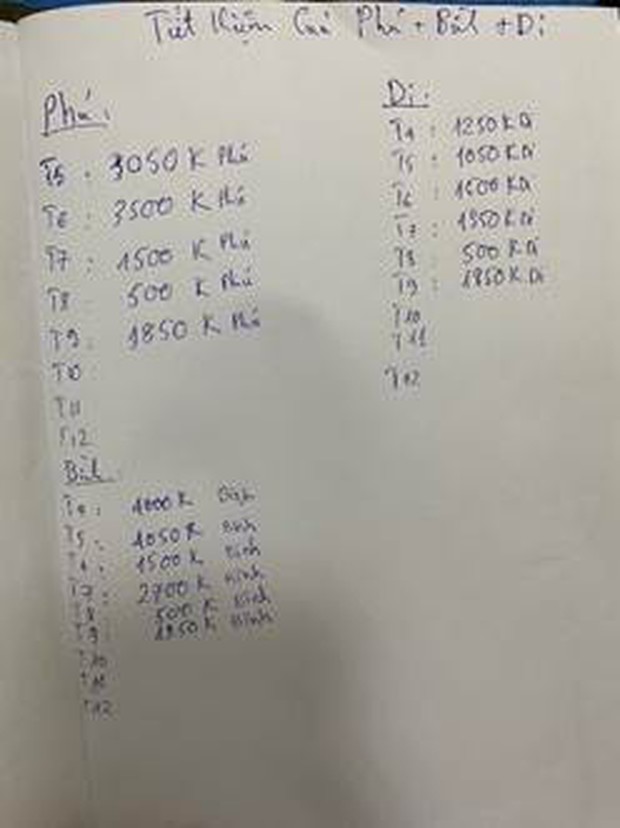 Tiết Kiệm Của Phú + Bình + Di
Phú:
T5 : 3050 K Phú
T6 : 3500 K Phú
T7 : 1500 K Phú
T8 500 K Phú
T9 : 1850 K Phú
T10
T11
T12
Bình
T4 : 1000 K Bình
T5 : 1050 K Bình
T6 : 1500 K Bình
T7 : 2700 K Bình
T8 500 K Bình
T9 : 1850 K Bình
T10
T11
T12
Di:
T4 : 1250 K Di
T5 : 1050 K Di
T6 : 1600 K Di
T7 : 1950 K Di
T8 500 K Di
T9 : 1850 K Di
T10
T11
T12